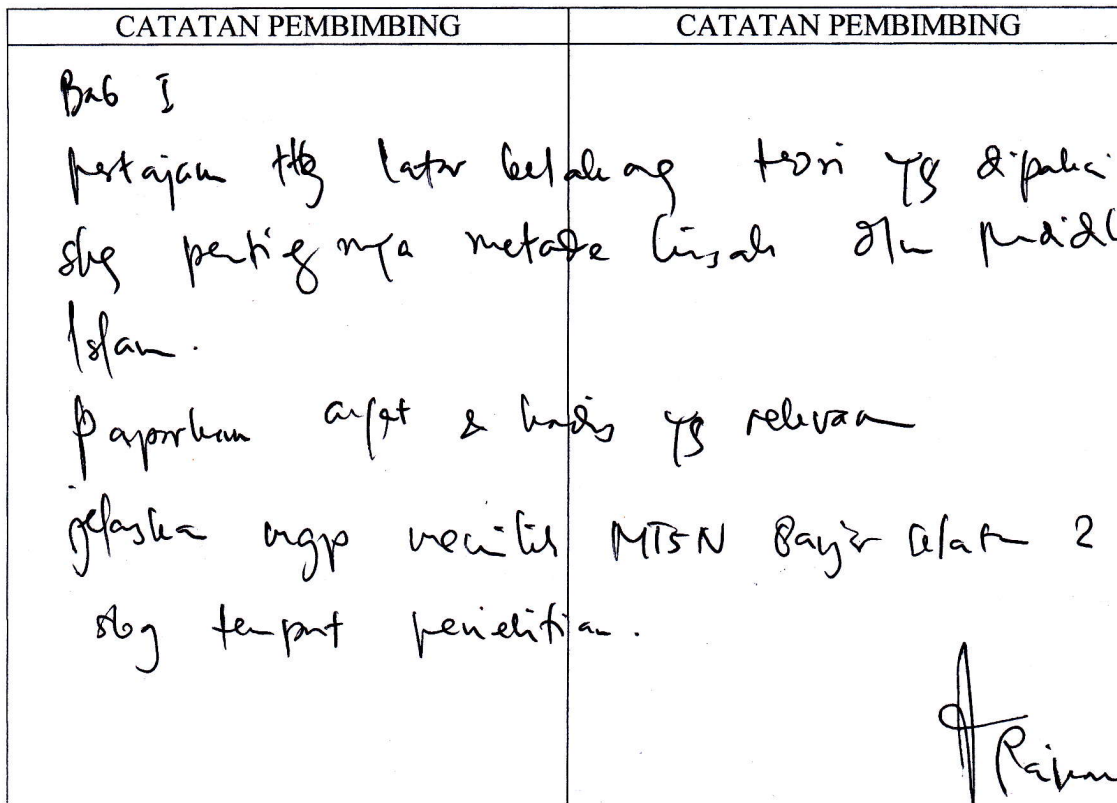 CATATAN PEMBIMBING CATATAN PEMBIMBING
Bab I
pertajam ttg latar belakang teori yg dipakai
sbg pentingnya metode kisah dlm pendidik
Islam.
Paparkan ayat & hadis yg relevan
jelaskan mgp memilih MTsN Banjar Selatan 2
sbg tempat penelitian.